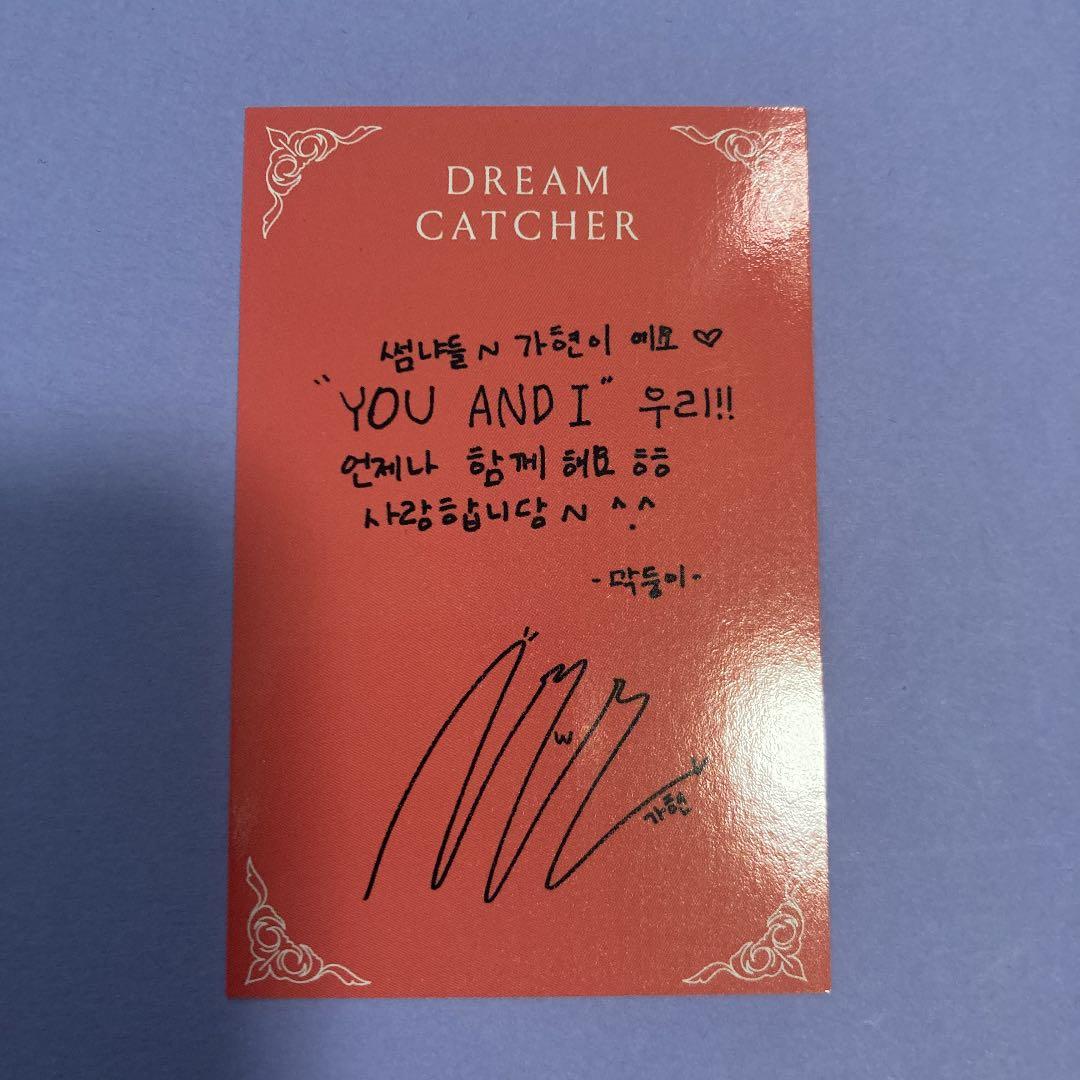 DREAM
CATCHER
썸냐들~ 가현이 예요♡
"YOU AND I" 우리!!
언제나 함께 해요 ㅎㅎ
사랑합니당~ ^.^
-막둥이-
w
가현